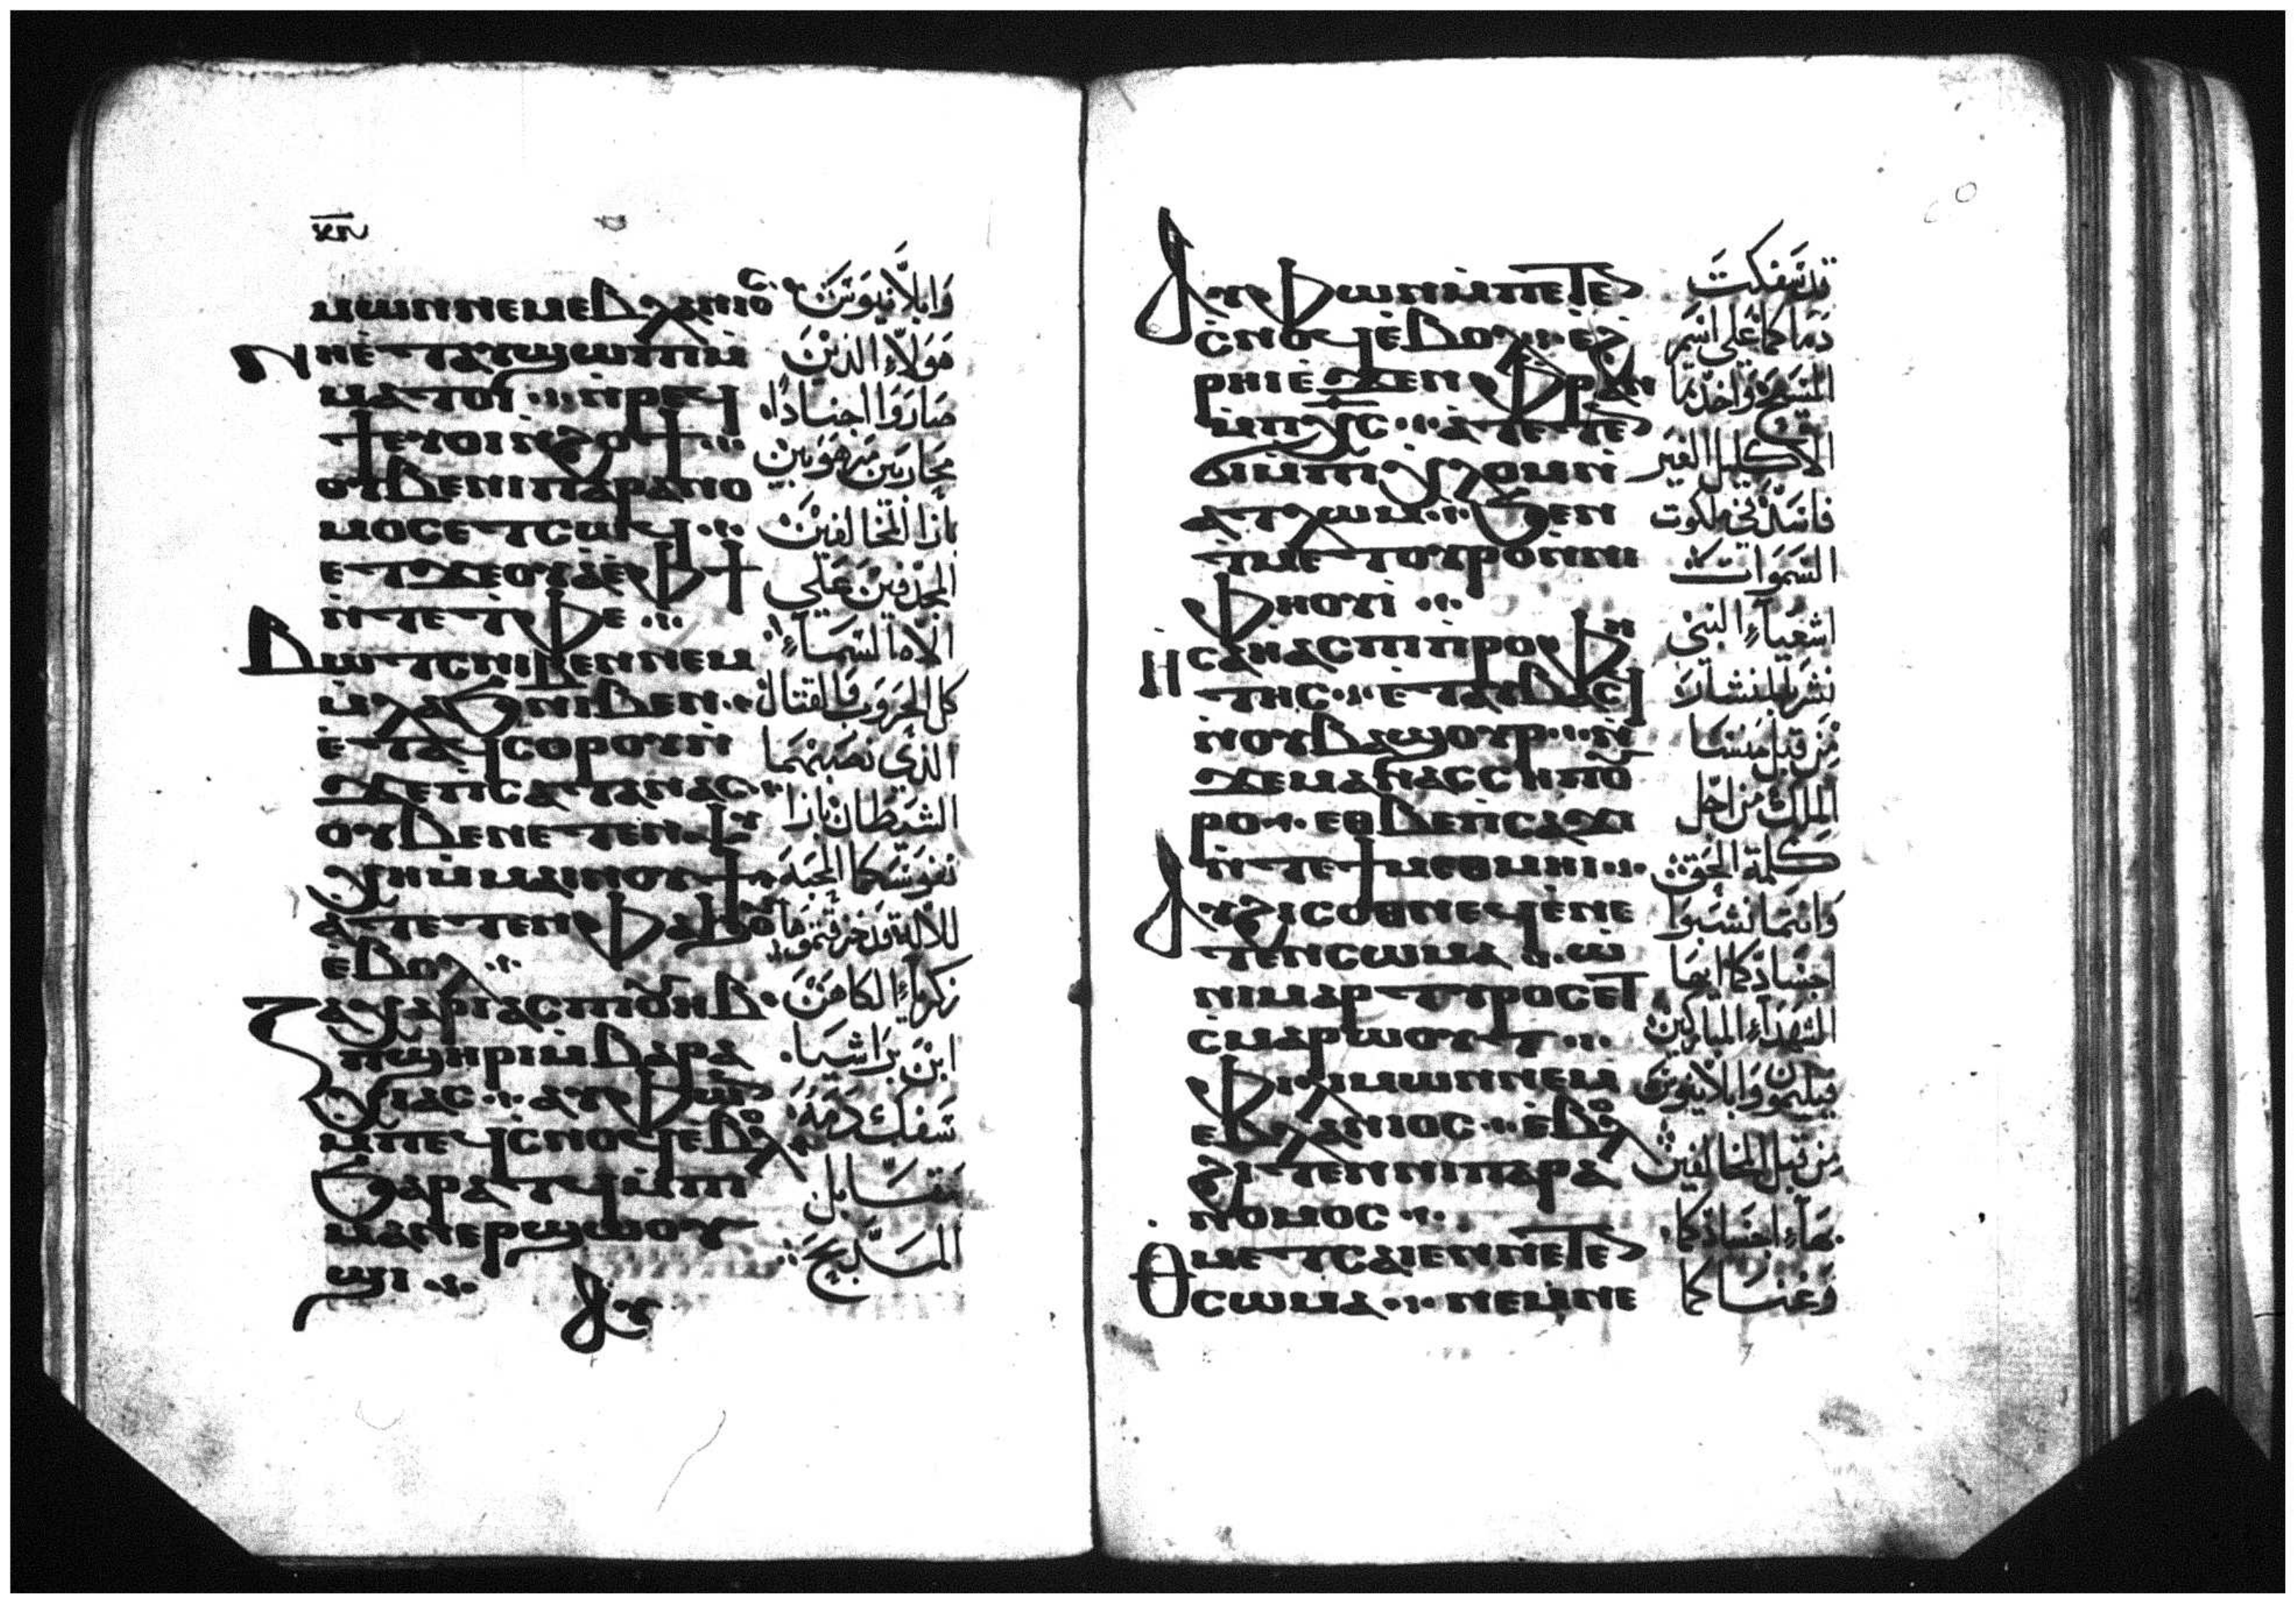 ⲙⲱⲛⲛⲉⲙⲉⲃⲗⲁⲛⲓⲟⲥ
ⲛⲏⲉⲧⲁⲩϣⲱⲡⲓⲙ
ⲙⲁⲧⲟⲓ ⲛⲣⲉϥ
ϯⲉⲩⲟⲓⲛϩⲟϯ
ⲟⲩⲃⲉⲛⲓⲡⲁⲣⲁⲛⲟ
ⲙⲟⲥⲉⲧⲥⲱϥ
ⲉⲧϫⲉⲟⲩⲁⲉⲫϯ
ⲛⲧⲉⲧⲫⲉ
ⲃⲱⲧⲥⲛⲓⲃⲉⲛⲛⲉⲙ
ⲙⲗⲁϧⲛⲓⲃⲉⲛ
ⲉⲧⲁϥⲥⲟⲣⲟⲩⲛ
ϫⲉⲡⲥⲁⲧⲁⲛⲁⲥ
ⲟⲩⲃⲉⲛⲉⲧⲉⲛⲯⲩ
ⲭⲏⲙⲙⲁⲓⲛⲟⲩϯ
ⲁⲧⲉⲧⲉⲛⲫⲁϧⲟⲩ
ⲉⲃⲟⲗ
ⲍⲁⲭⲁⲣⲓⲁⲥⲡⲓⲟⲩⲏⲃ
ⲡϣⲏⲣⲓⲙⲃⲁⲣⲁ
ⲭⲓⲁⲥ ⲁⲩⲫⲱⲛ
ⲙⲡⲉϥⲥⲛⲟϥⲉⲃⲟⲗ
ϧⲁⲣⲁⲧϥⲙⲡⲓ
ⲙⲁⲛⲉⲣϣⲱⲟⲩ
ϣⲓ
ⲁⲩ
وابلانيوس
هولاء الذين
صاروا اجنادا
محاربين مرهوبين
بازا المخالفين
المجدفين علي
الاه السماء
كل الحروب والقتال
الذي نصبهما
الشيطان بازا
نفوسكما المحبة
للاله قد خرقتموها
زكرياء الكاهن
ابن براشيا
سفك دمه
مقابل
المسابح
ⲁⲩⲫⲱⲛⲙⲡⲉⲧⲉⲛ
ⲥⲛⲟϥⲉⲃⲟⲗ ⲉϩ
ⲣⲏⲓⲉϫⲉⲛⲫⲣⲁⲛ
ⲙⲡⲭⲥ ⲁⲧⲉⲧⲉⲛ
ϭⲓⲙⲡⲓⲭⲗⲟⲙⲛ
ⲁⲧⲗⲱⲙ ϧⲉⲛ
ⲧⲙⲉⲧⲟⲩⲣⲟⲛⲛⲓ
ⲫⲏⲟⲩⲓ
ⲏⲥⲁⲏⲁⲥⲡⲓⲡⲣⲟⲫⲏ
ⲧⲏⲥ ⲉⲧⲁⲩⲃⲁⲥϥ
ⲛⲟⲩⲃⲁϣⲟⲩⲣ ⲛ
ϫⲉⲙⲁⲛⲁⲥⲥⲏⲡⲟⲩ
ⲣⲟ ⲉⲑⲃⲉⲡⲥⲁϫⲓ
ⲛⲧⲉϯⲙⲉⲑⲙⲏⲓ
ⲁⲩϩⲓⲥⲟⲑⲛⲉϥⲉⲛⲉ
ⲧⲉⲛⲥⲱⲙⲁ ⲱ
ⲛⲓⲙⲁⲣⲧⲩⲣⲟⲥⲉⲧ
ⲥⲙⲁⲣⲱⲟⲩⲧ
ⲫⲓⲗⲓⲙⲱⲛⲛⲉⲙ
ⲉⲃⲗⲁⲛⲓⲟⲥ ⲉⲃⲟⲗ
ϩⲓⲧⲉⲛⲛⲓⲡⲁⲣⲁ
ⲛⲟⲙⲟⲥ
ⲑⲙⲉⲧⲥⲁⲓⲉⲛⲛⲉⲧⲉⲛ
ⲥⲱⲙⲁ ⲛⲉⲙⲛⲉ
قد سفكت
دماكما علي اسم
المسيح واخذتما
الاكليل الغير
فاسد في ملكوت
السموات
اشعياء النبي
نشر بالمنشار
من قبل منسا
الملك من اجل
كلمة الحق
وانتما نشبوا
اجسادكما ايها
الشهداء المباركين
فيلمون وابلانيوس
من قبل المخالفين
بهاء اجسادكما
وغنسا كما